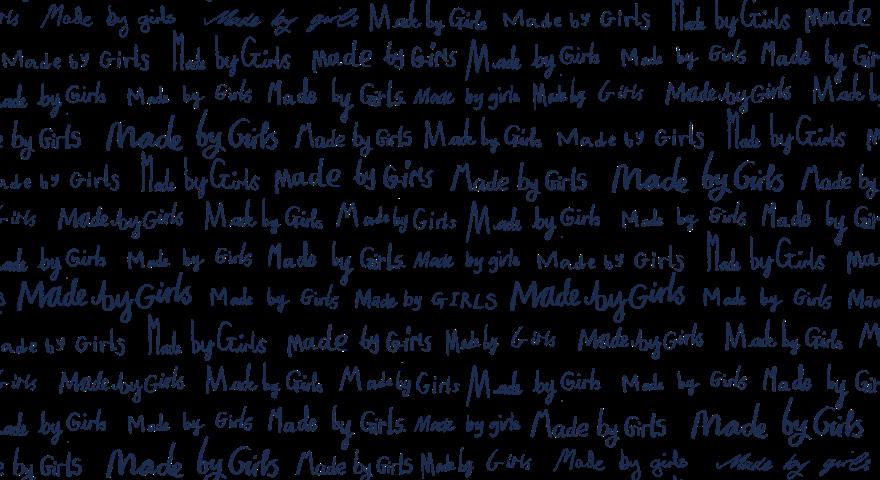 Made by girls Made by girls Made by Girls Made by Girls Made by Girls Made
Made by Girls Made by Girls Made by Girls Made by Girls Made by Girls Made by
by Girls Made by Girls Made by Girls Made by girls Made by Girls Made by Girls Made by
by Girls Made by Girls Made by Girls Made by Girls Made by Girls Made by Girls
by Girls Made by Girls Made by Girls Made by Girls Made by Girls Made by
Girls Made by Girls Made by Girls Made by Girls Made by Girls Made by Girls Made by
by Girls Made by Girls Made by Girls Made by girls Made by Girls Made by Girls
Made by Girls Made by Girls Made by GIRLS Made by Girls Made by Girls
by Girls Made by Girls Made by Girls Made by Girls Made by Girls Made by Girls
Girls Made by Girls Made by Girls Made by Girls Made by Girls Made by Girls Made by
by Girls Made by Girls Made by Girls Made by girls Made by Girls Made by Girls
by Girls Made by Girls Made by Girls Made by Girls Made by girls Made by girls